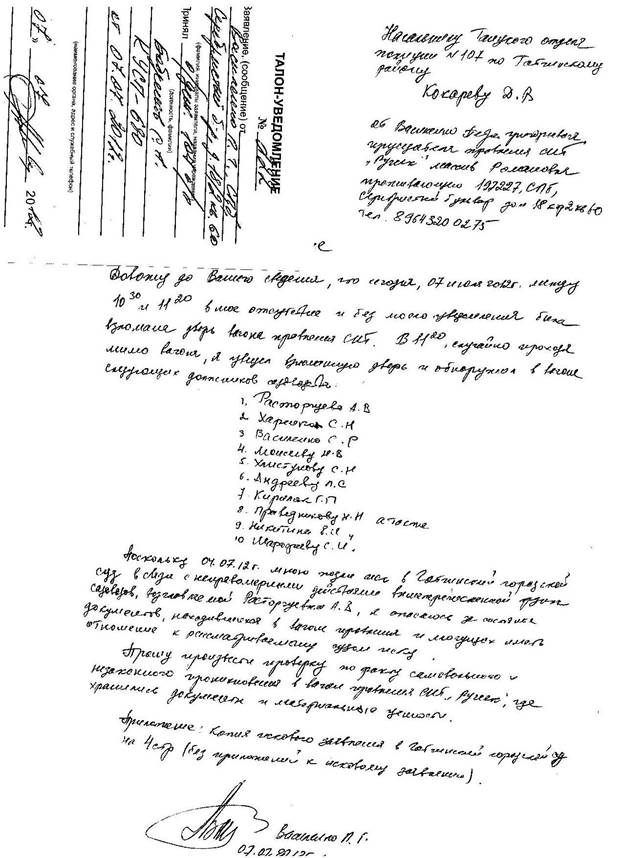 ТАЛОН-УВЕДОМЛЕНИЕ
№
Заявление, (сообщение) от
Василенко П. Г., СПб
Серебристый б-р, д. 18 к. 2 кв. 60
(фамилия, имя, отчество заявителя)
Принял
(должность, фамилия)
КУСП - 680
от 07.07.2012г.
(наименование органа, адрес и служебный телефон)
"07" 07 2012г.
Начальнику Таицкого отдела
полиции № 107 по Гатчинскому
району
Кокареву Д.В
от Василенко
председателя правления СНТ
"Ручеек" массив
проживающего 197227, СПб,
Серебристый бульвар дом 18 кор 2 кв 60
тел. 8964320 0275
Довожу до Вашего сведения, что сегодня, 07 июля 2012г. между
10 30 и 11 20 в мое отсутствие и без моего уведомления была
взломана дверь вагона правления СНТ. В 11 20, случайно проходя
мимо вагона, я увидел взломанную дверь и обнаружил в вагоне
следующих должников
1. Расторгуева А.В
2 С.Н
3 Василенко С.Р
4. Моисееву Н.В
5. С.Н
6. Андрееву Л.С
7 Кирилюк Г.П
8. Проводникову Н.Н а также
9. Никитина В.И,
10 С.И.
Поскольку 04.07.12г. мною подан иск в Гатчинский городской
суд в связи с неправомерными действиями группы
садоводов, возглавляемой Расторгуевым А.В, я опасаюсь за
документов, находившихся в вагоне правления и могущих иметь
отношение к рассматриваемому судом иску.
Прошу произвести проверку по факту самовольного и
незаконного проникновения в вагон правления СНТ "Ручеек", где
хранились документы и материальные ценности.
Приложение: Копия искового заявления в Гатчинский городской суд
на 4 стр (без приложений к исковому заявлению).
Василенко П. Г.
07.07.2012г.